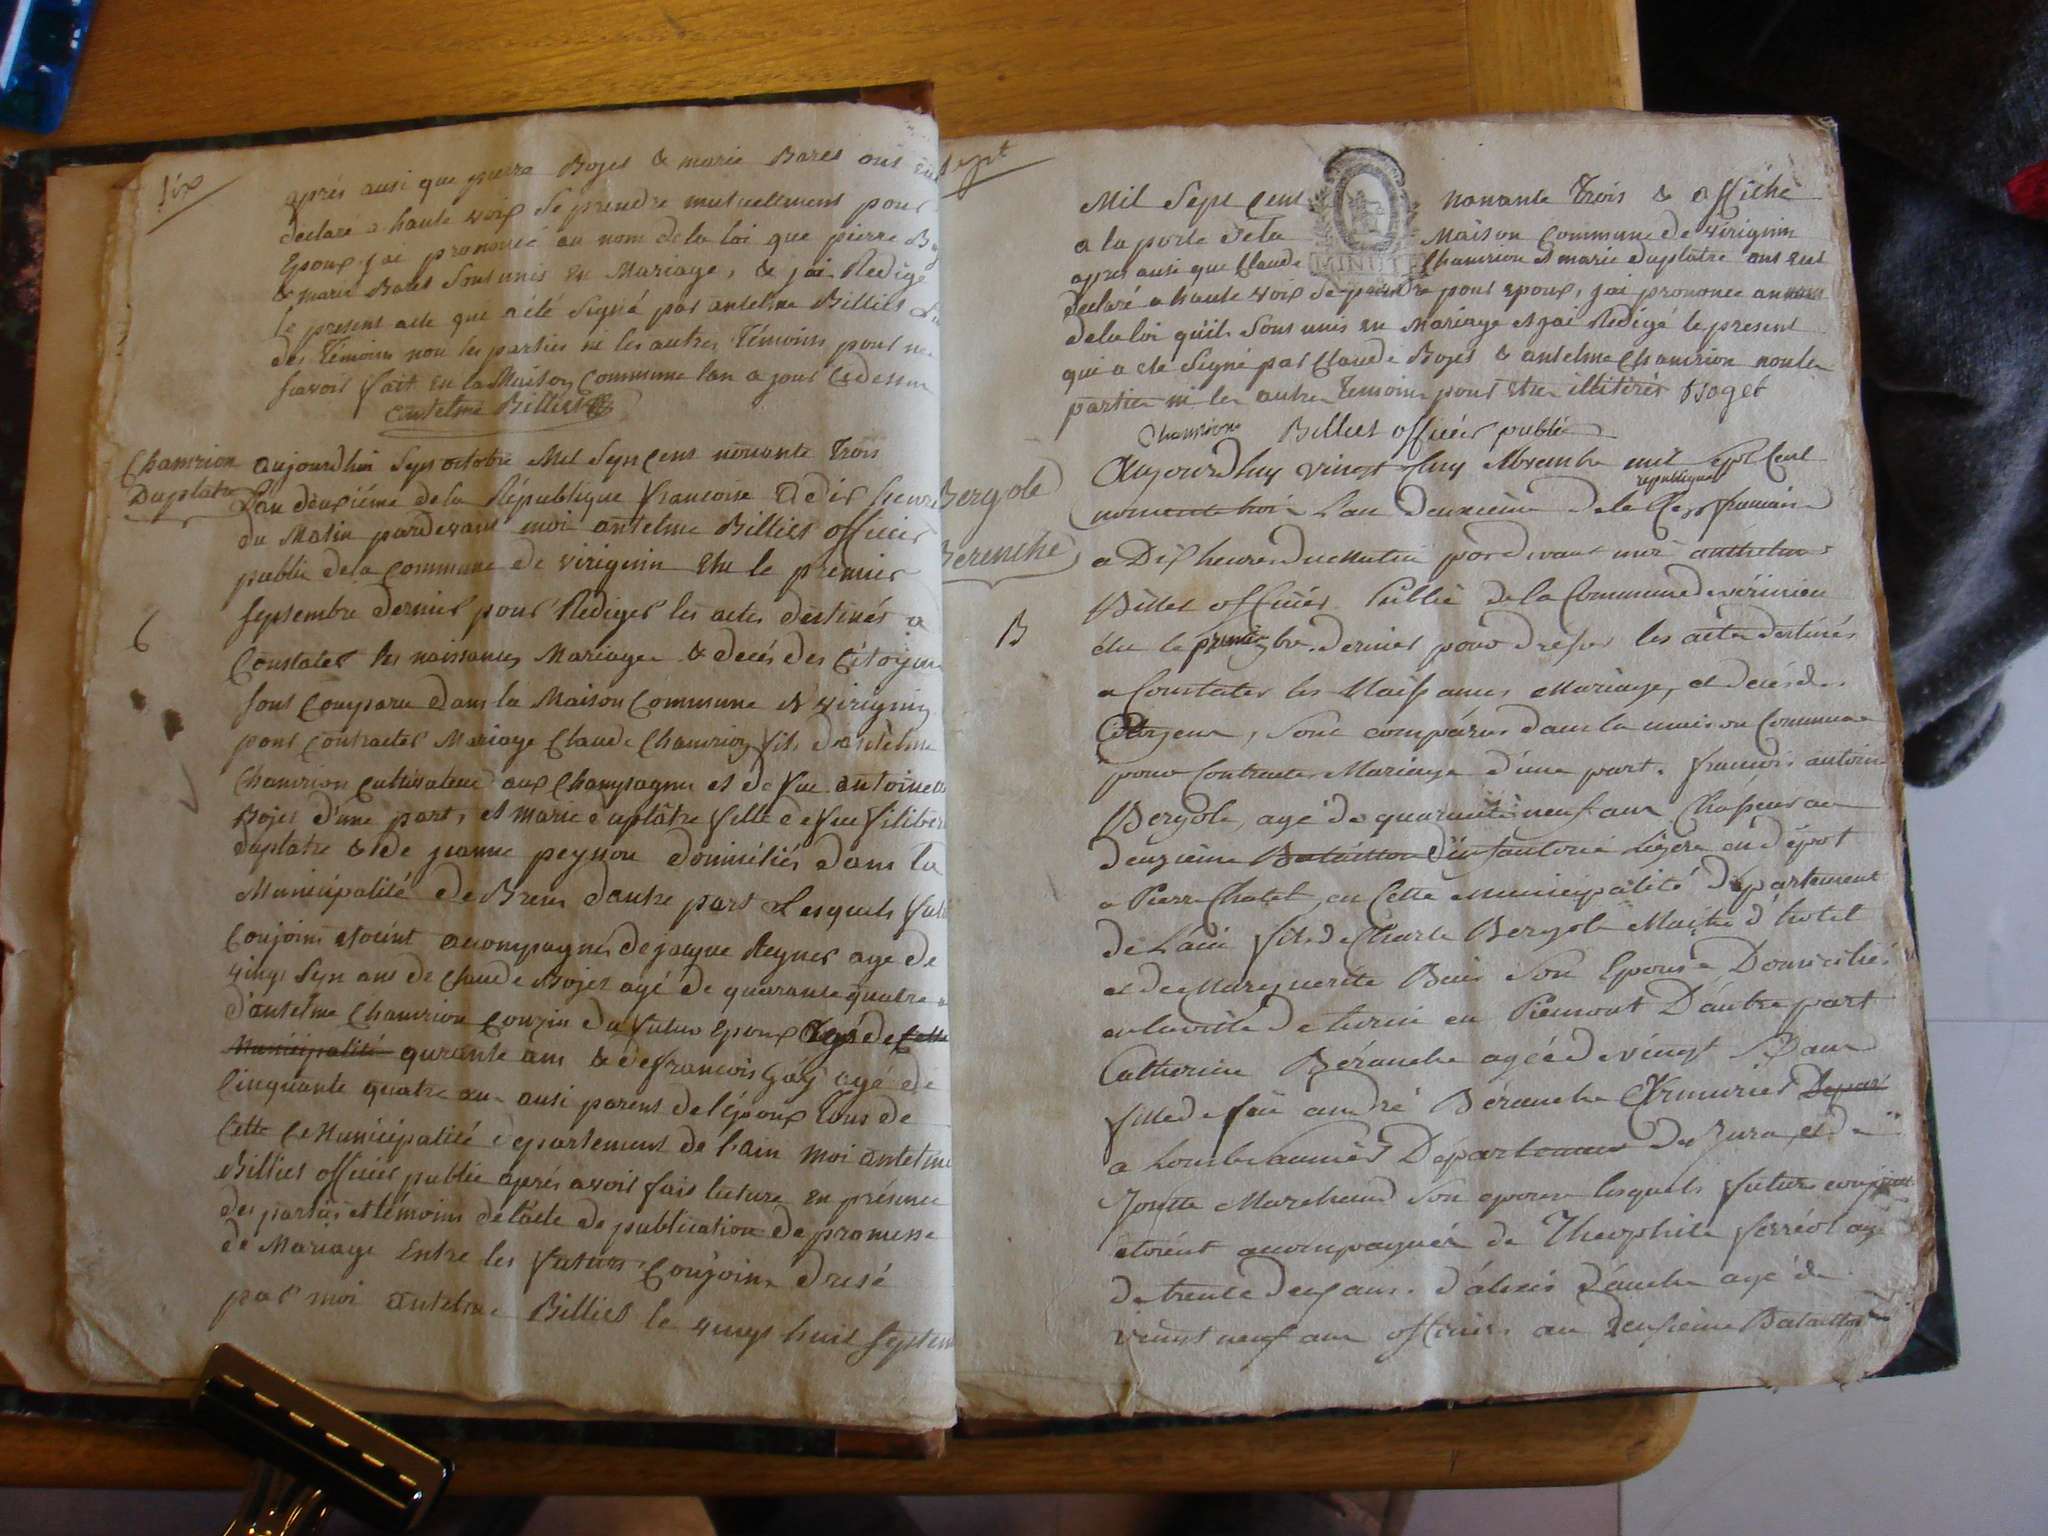 six
après ausi que pierre Bojet & marie Bares ont
declaré a haute voix se prendre mutuellement pour
Epoux j'ai prononcé au nom de la loi que pierre
& marie Bares sont unis en Mariage, & j'ai Redigé
le present acte qui a été Signé par antelme Billiet
des Témoins non les parties ni les autres Témoins pour ne
savoir fait en la Maison Commune lan & jour cidessus
antelme Billiet
Chamrion
Duplatre
6
aujourdhui Syn octobre Mil Syn cens nonante Trois
L'an deuxiéme de la République francoise a dix heure
du Matin pardevant moi antelme Billiet officier
public de la commune de virignin Elu le premier
septembre dernier pour Rediger les actes destinés a
Constater les naissances Mariages & decés des Citoyens
sont Comparu dans la Maison Commune de virignin
pour contracter Mariage Claude Chamrion fils d'antelme
Chamrion cultivateur aux Champagnes et de fue antoinette
Bojet d'une part, et marie duplâtre fille de feu filibert
duplatre & de jeanne peysson domiciliés dans la
Municipalité de Brens dautre part Lesquels futurs
Conjoins etoint acompagnes de jaque Reynet age de
vingt Syn ans de Claude Bojet agé de quarante quatre
d'antelme Chamrion couzin du futur epoux agé de cette
Municipalité qurante ans & de francois Gay agé de
Cinquante quatre ans ausi parens de l'époux Tous de
Cette Municipalité departement de l'ain moi antelme
Billiet officier public aprés avoir fais lecture en présence
des parties et témoins de l'acte de publication de promesse
de Mariage Entre les futurs Conjoins dresé
par moi antelme Billiet le vingt huit septem
sept
Mil Sept cent nonante Trois & affiché
a la porte de la Maison Commune de virignin
MINUTE
apres ausi que Claude Chamrion & marie duplatre ont
declaré a haute voix se prendre pour epoux, j'ai prononcé au nom
de la loi qu'il sont unis en Mariage et jai Redigé le present
qui a eté Signé par Claude Bojet & antelme Chamrion non les
parties ni les autres Temoins pour etre illitérés Boget
Chamrion Billiet officier public
Bergole
Berenche
B
Aujourdhuy vingt Novembre mil sept cent
republique
nonente troi L'an deuxieme de la francaise
a Dix heures du matin par devant moi anthelme
Billet officier Public de la Commune de
élu le premier 7bre dernier pour dresser les actes destinés
a Constater les Naissances Mariages, et decés des
Citoyens, sont comparus dans la maison Commune
pour Contracter Mariage d'une part. francois antoine
Bergole, agé de quarante neuf ans Chasseur au
deuxieme Bataillon d'infanterie Légére en dépot
a Pierre Chatel en cette municipalité département
de Lain fils de Charle Bergole Maitre d'hotel
et de Marguerite son Epouse Domicilié
en la ville de turin en Piemont D'autre part
Catherine Béranche agée de vingt ans
fille de feu andré Béranche Armurier
a Departement du Jura et de
Marchand son epouse lesquels futurs conjoints
étoient acompagnés de Theophile ferréol agé
de trente deux ans. d'alexis agé de
vingt neuf ans officiers au deuxieme Bataillon